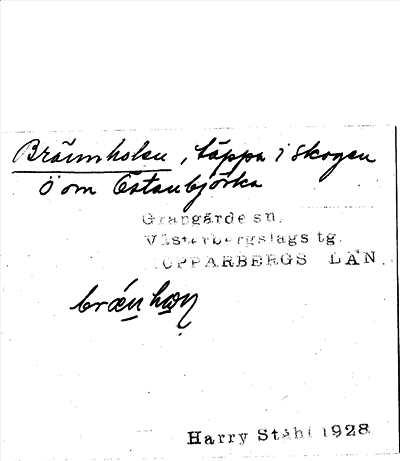 Brännholen, täppa i skogen
ö om Östanbjörka
Grangärde sn.
Västerbergslags tg.
KOPPARBERGS LÄN
Harry Ståhl 1928